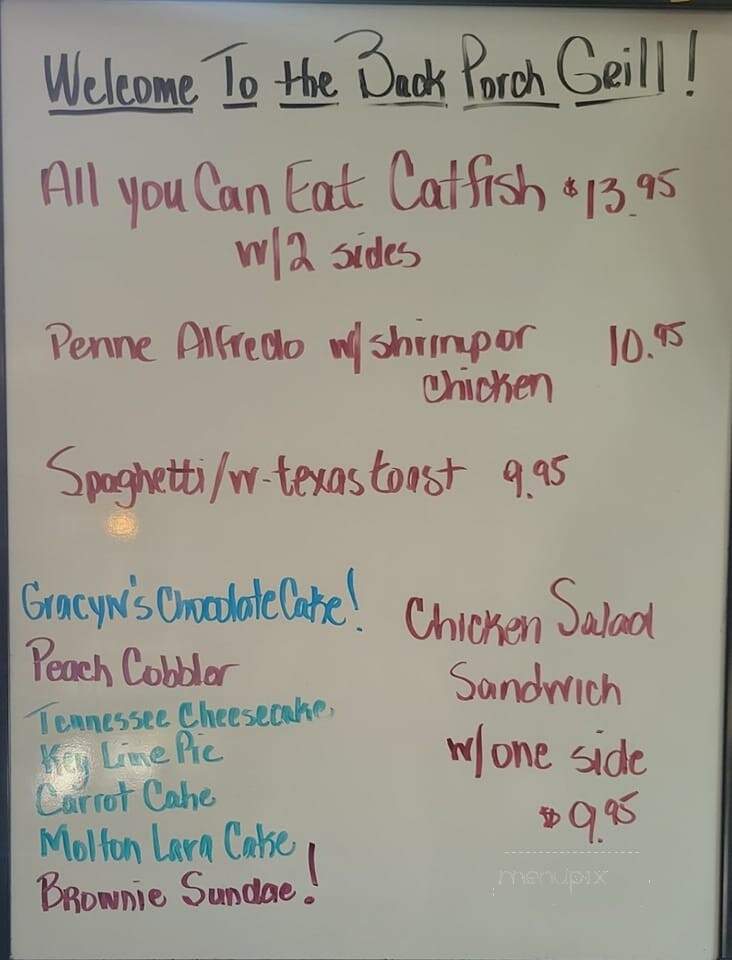 Welcome To the Back Porch Grill!
All you Can Eat Catfish $13.95
w/2 sides
Penne Alfredo w/shrimp or 10.95
chicken
Spaghetti/w-texas toast 9.95
Gracyn's Chocolate Cake!
Peach Cobbler
Tennessee Cheesecake
Key Lime Pie
Carrot Cake
Molton Lava Cake
Brownie Sundae!
Chicken Salad
Sandwich
w/one side
$9.95
menupix